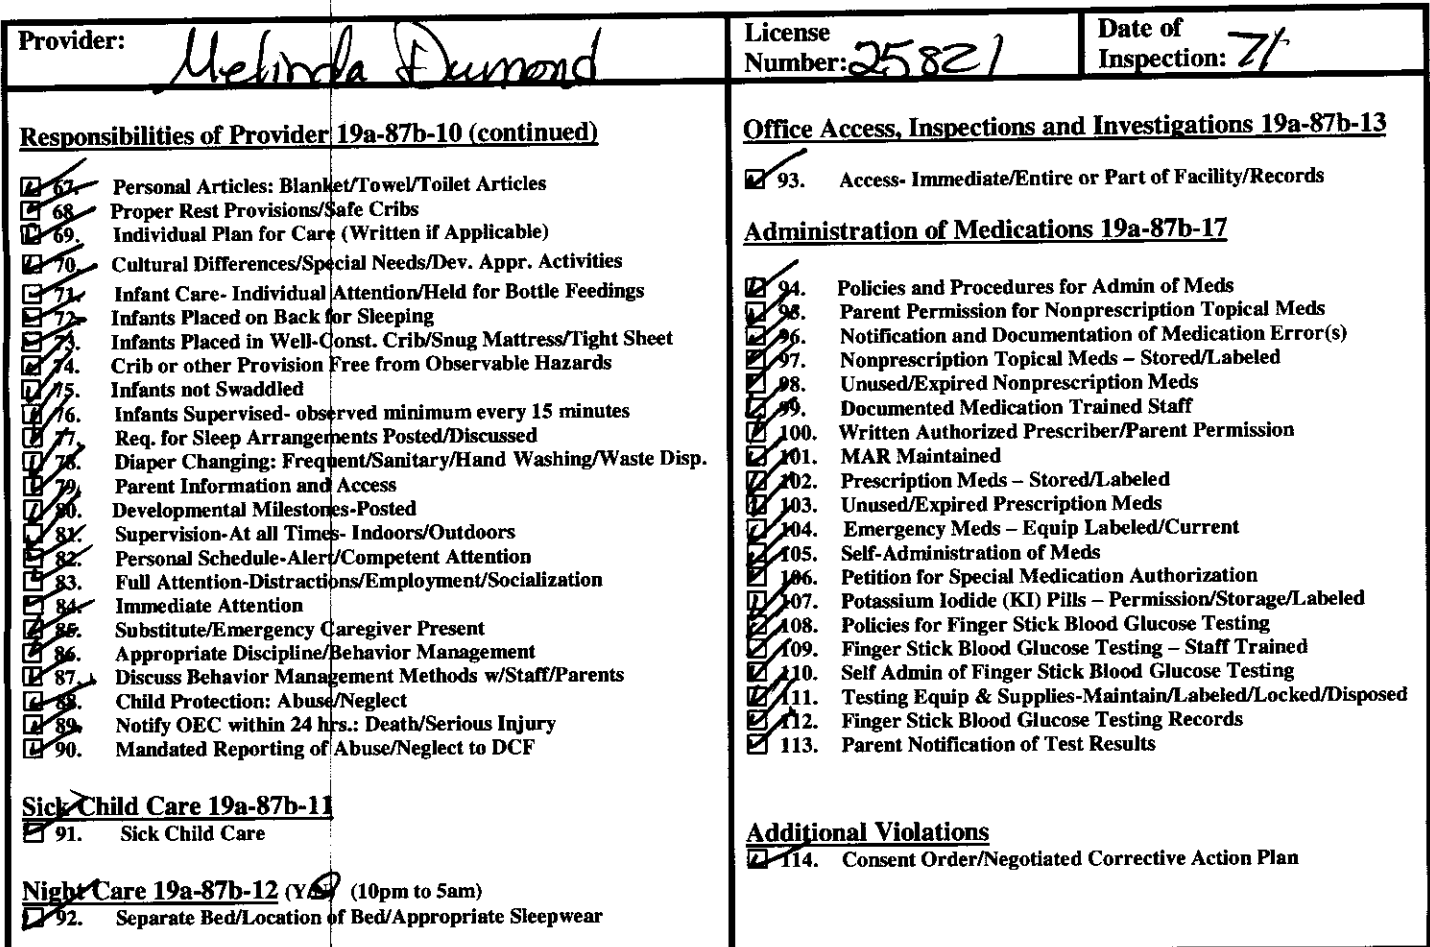 Provider: Melinda Dumond
License Number: 25821
Date of Inspection: 7/
Responsibilities of Provider 19a-87b-10 (continued)
67. Personal Articles: Blanket/Towel/Toilet Articles
68. Proper Rest Provisions/Safe Cribs
69. Individual Plan for Care (Written if Applicable)
70. Cultural Differences/Special Needs/Dev. Appr. Activities
71. Infant Care- Individual Attention/Held for Bottle Feedings
72. Infants Placed on Back for Sleeping
73. Infants Placed in Well-Const. Crib/Snug Mattress/Tight Sheet
74. Crib or other Provision Free from Observable Hazards
75. Infants not Swaddled
76. Infants Supervised- observed minimum every 15 minutes
77. Req. for Sleep Arrangements Posted/Discussed
78. Diaper Changing: Frequent/Sanitary/Hand Washing/Waste Disp.
79. Parent Information and Access
80. Developmental Milestones-Posted
81. Supervision-At all Times- Indoors/Outdoors
82. Personal Schedule-Alert/Competent Attention
83. Full Attention-Distractions/Employment/Socialization
84. Immediate Attention
85. Substitute/Emergency Caregiver Present
86. Appropriate Discipline/Behavior Management
87. Discuss Behavior Management Methods w/Staff/Parents
88. Child Protection: Abuse/Neglect
89. Notify OEC within 24 hrs.: Death/Serious Injury
90. Mandated Reporting of Abuse/Neglect to DCF
Sick Child Care 19a-87b-11
91. Sick Child Care
Night Care 19a-87b-12 (Y/N) (10pm to 5am)
92. Separate Bed/Location of Bed/Appropriate Sleepwear
Office Access, Inspections and Investigations 19a-87b-13
93. Access- Immediate/Entire or Part of Facility/Records
Administration of Medications 19a-87b-17
94. Policies and Procedures for Admin of Meds
95. Parent Permission for Nonprescription Topical Meds
96. Notification and Documentation of Medication Error(s)
97. Nonprescription Topical Meds – Stored/Labeled
98. Unused/Expired Nonprescription Meds
99. Documented Medication Trained Staff
100. Written Authorized Prescriber/Parent Permission
101. MAR Maintained
102. Prescription Meds – Stored/Labeled
103. Unused/Expired Prescription Meds
104. Emergency Meds – Equip Labeled/Current
105. Self-Administration of Meds
106. Petition for Special Medication Authorization
107. Potassium Iodide (KI) Pills – Permission/Storage/Labeled
108. Policies for Finger Stick Blood Glucose Testing
109. Finger Stick Blood Glucose Testing – Staff Trained
110. Self Admin of Finger Stick Blood Glucose Testing
111. Testing Equip & Supplies-Maintain/Labeled/Locked/Disposed
112. Finger Stick Blood Glucose Testing Records
113. Parent Notification of Test Results
Additional Violations
114. Consent Order/Negotiated Corrective Action Plan